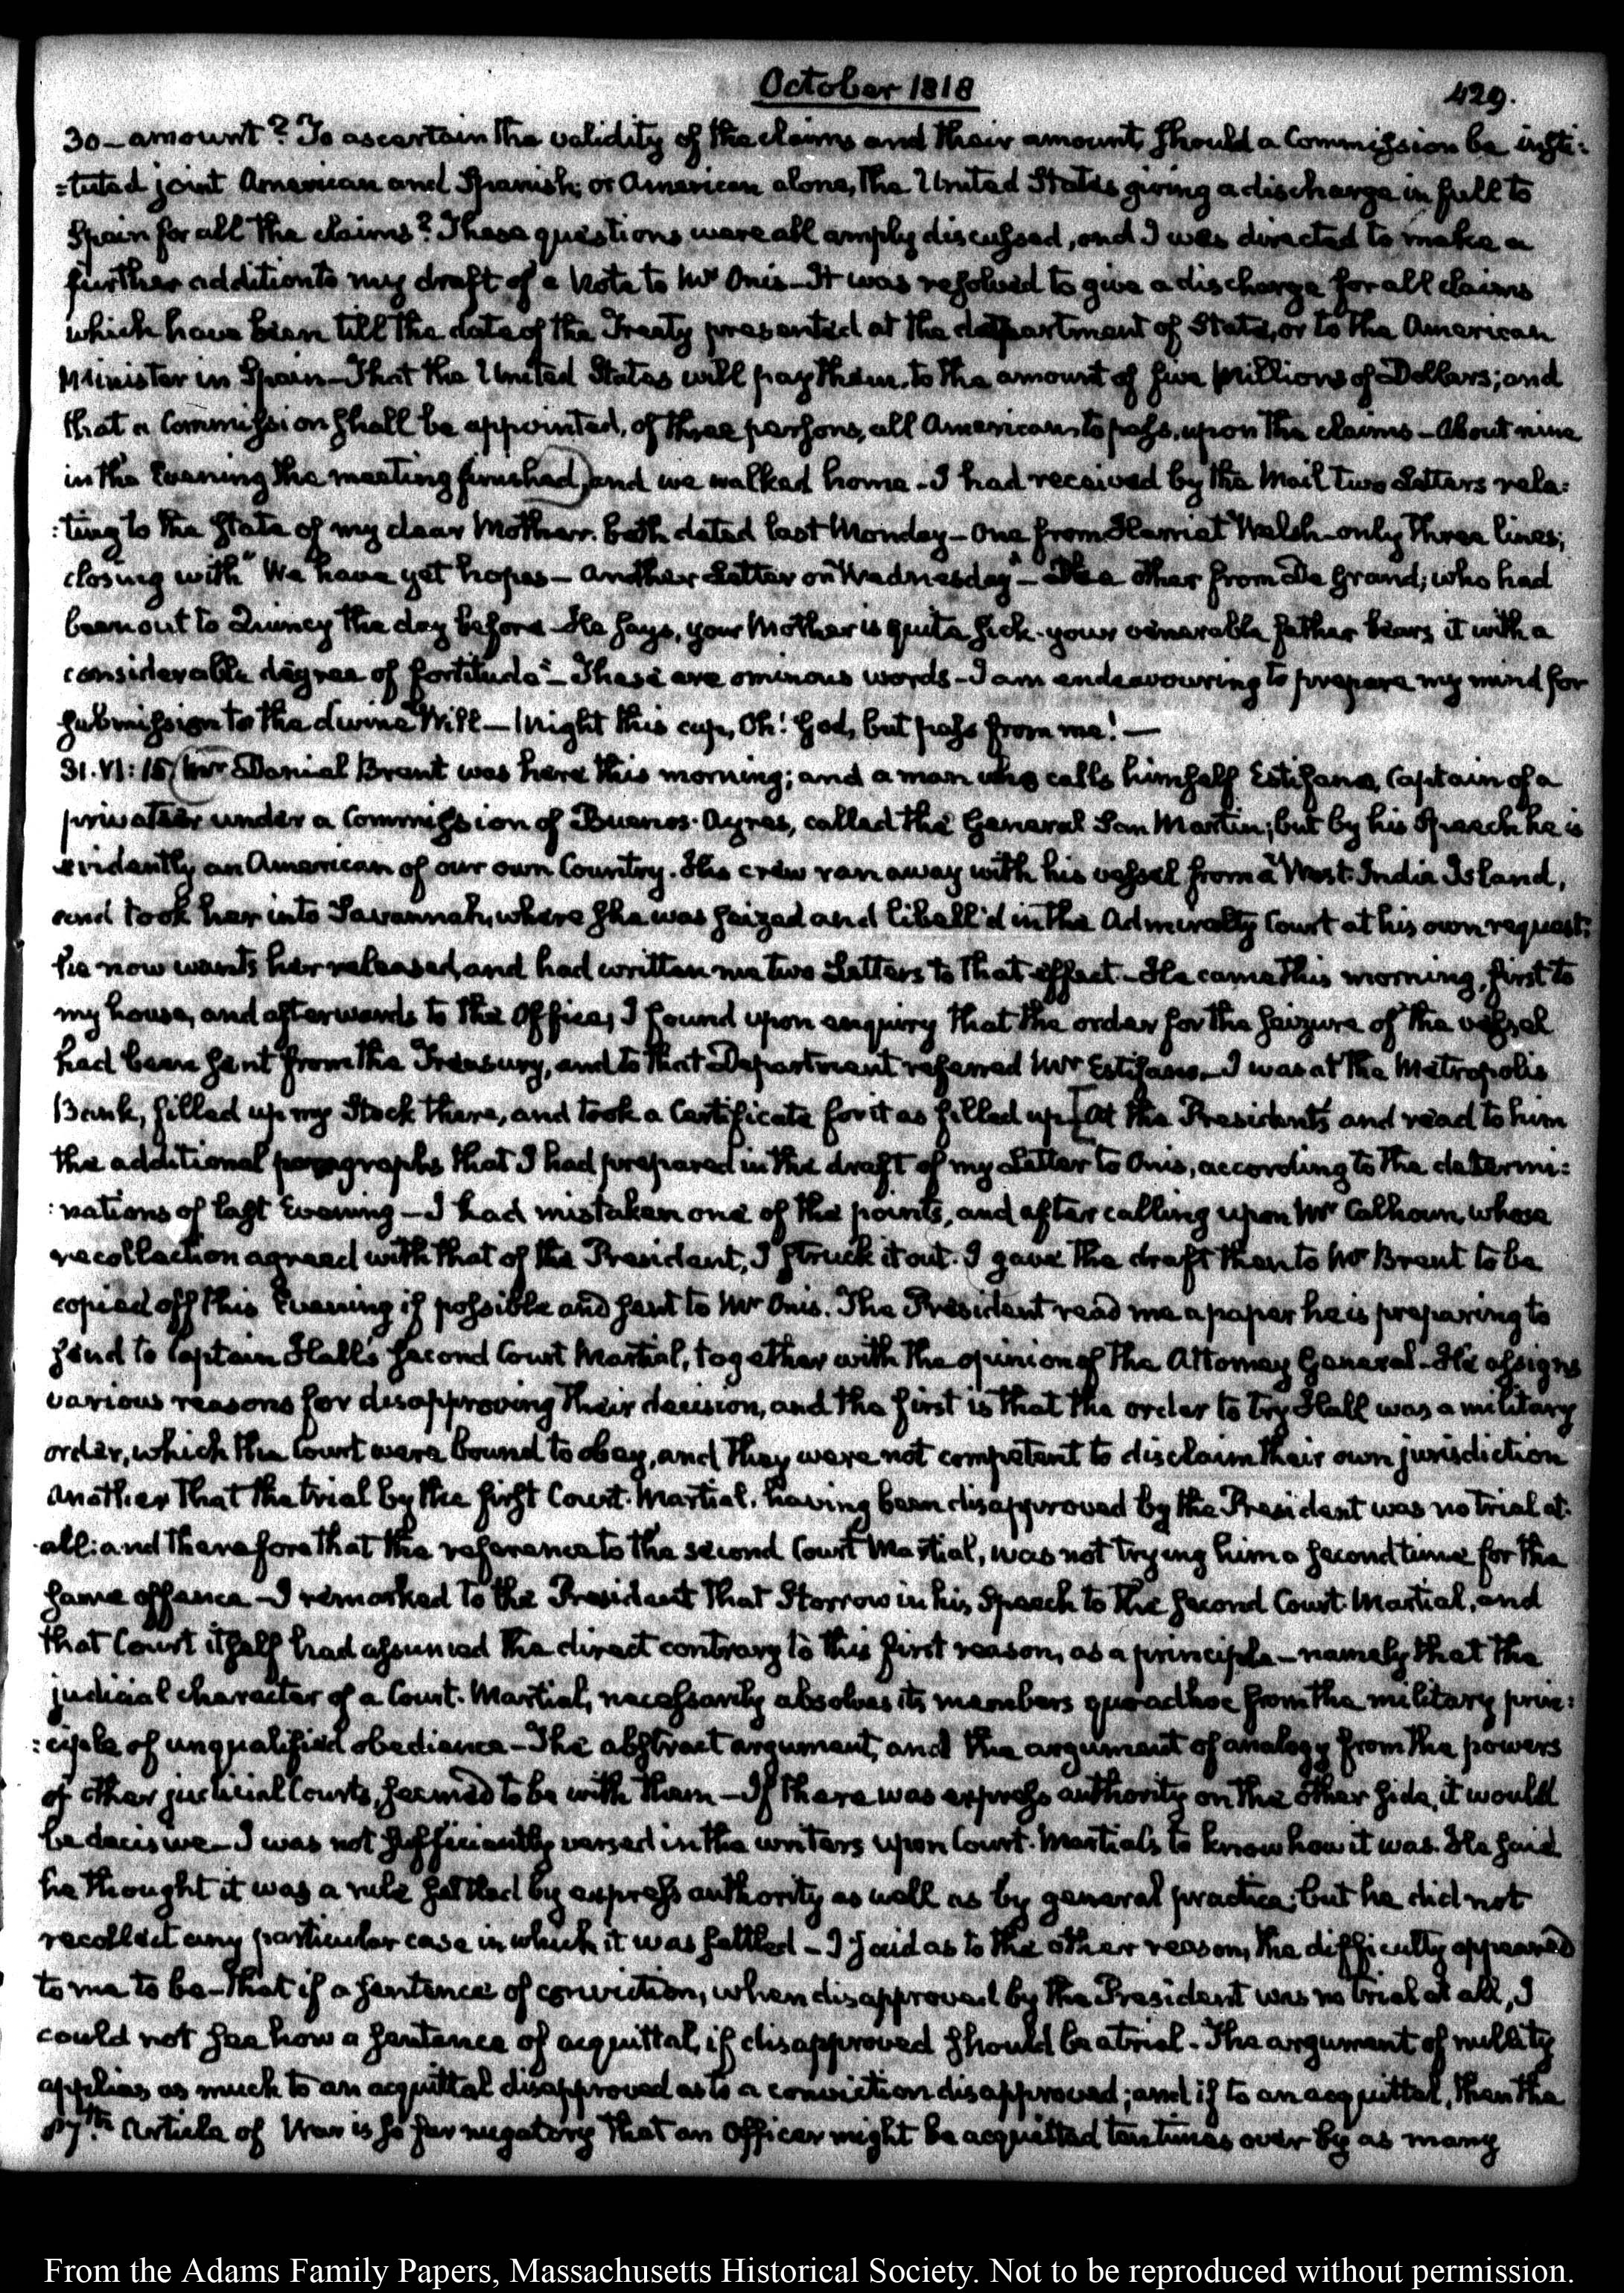 October 1818
429.
30 – amount? To ascertain the validity of the claims and their amount, should a Commission be insti:
:tuted joint American and Spanish; or American alone, the United States giving a discharge in full to
Spain for all the claims? These questions were all amply discussed, and I was directed to make a
further addition to my draft of a Note to Mr. Onis – It was resolved to give a discharge for all claims
which have been till the date of the Treaty presented at the department of State, or to the American
Minister in Spain – That the United States will pay them, to the amount of five Millions of Dollars; and
that a Commission shall be appointed, of three persons, all Americans to pass, upon the claims – About nine
in the Evening the meeting finished, and we walked home – I had received by the Mail two Letters rela:
:ting to the state of my dear Mother. both dated last Monday – One from Harriet Welsh – only three lines;
closing with "We have yet hopes – Another Letter on Wednesday" – The other from De Grand; who had
been out to Quincy the day before – He says, your Mother is quite sick – your venerable father bears it with a
considerable degree of fortitude" – These are ominous words – I am endeavouring to prepare my mind for
submission to the divine Will – Might this cup, Oh! God, but pass from me! –
31. VI: 15. Mr Daniel Brent was here this morning; and a man who calls himself Estifano, Captain of a
privateer under a Commission of Buenos-Ayres, called the General San Martin; but by his speech he is
evidently an American of our own Country. His crew ran away with his vessel from a West-India Island,
and took her into Savannah, where she was seized and libell'd in the Admiralty Court at his own request;
he now wants her released, and had written me two Letters to that effect – He came this morning, first to
my house, and afterwards to the Office, I found upon enquiry that the order for the seizure of the vessel
had been sent from the Treasury, and to that Department referred Mr Estifano – I was at the Metropolis
Bank, filled up my Stock there, and took a Certificate for it as filled up [At the President's and read to him
the additional paragraphs that I had prepared in the draft of my Letter to Onis, according to the determi:
:nations of last Evening – I had mistaken one of the points, and after calling upon Mr Calhoun, whose
recollection agreed with that of the President, I struck it out. I gave the draft then to Mr Brent to be
copied off this Evening if possible and sent to Mr Onis. The President read me a paper he is preparing to
send to Captain Hall's second Court Martial, together with the opinion of the Attorney General – He assigns
various reasons for disapproving their decision, and the first is that the order to try Hall was a military
order, which the Court were bound to obey, and they were not competent to disclaim their own jurisdiction
Another that the trial by the first Court-Martial, having been disapproved by the President was no trial at
all: and therefore that the reference to the second Court Martial, was not trying him a second time for the
same offence – I remarked to the President that Storrow in his Speech to the second Court-Martial, and
that Court itself had assumed the direct contrary to this first reason, as a principle – namely that the
judicial character of a Court-Martial, necessarily absolves its members quoad hoc from the military prin:
:ciple of unqualified obedience – The abstract argument, and the argument of analogy from the powers
of other judicial Courts, seemed to be with them – If there was express authority on the other side, it would
be decisive – I was not sufficiently versed in the writers upon Court-Martials to know how it was. He said
he thought it was a rule settled by express authority as well as by general practice; but he did not
recollect any particular case in which it was settled – I said as to the other reason, the difficulty appeared
to me to be – that if a sentence of conviction, when disapproved by the President was no trial at all, I
could not see how a sentence of acquittal, if disapproved should be a trial – The argument of nullity
applies as much to an acquittal disapproved as to a conviction disapproved; and if to an acquittal, then the
87th. Article of War is so far nugatory that an Officer might be acquitted ten times over by as many
From the Adams Family Papers, Massachusetts Historical Society. Not to be reproduced without permission.